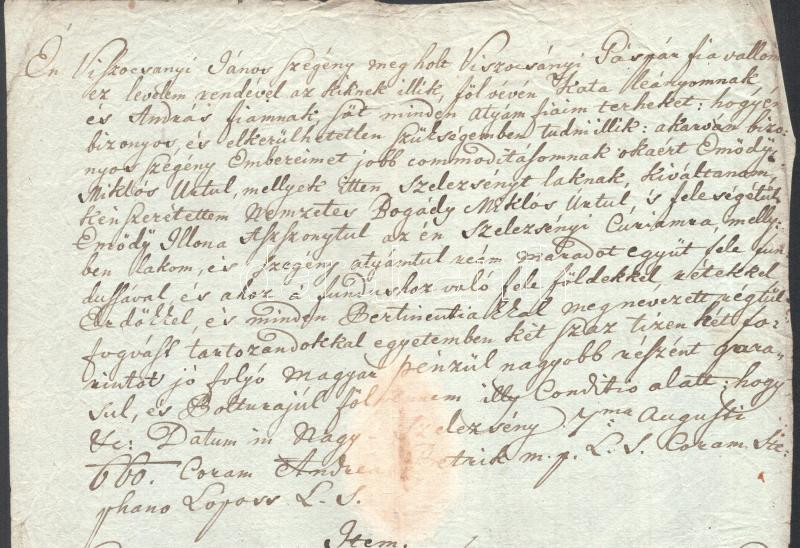 Én Viszocsanyi János szegény megholt Viszocsányi Gáspár fia vallom
ez levelem rendével az kiknek illik, fölvévén Kata leányomnak
és András fiamnak, söt minden atyámfiaim terheket: hogy én
bizonyos, és elkerülhetetlen szükségemben tudniillik: akarván bizo-
nyos szegény Embereimet jobb commoditásomnak okaért Emödÿ
Miklós Urtul, mellyek itten Szelezsényt laknak, kiváltanom,
kénszeréttettem Nemzetes Bogády Miklos Urtul, és feleségétül
Emödÿ Illona Aszszonytul az én Szelezsényi Cúriamra, melly-
ben lakom, és szegény atyámtul reám maradot együt fele fun-
dussával, és ahoz á fundushoz való fele földekkel, rétekkel
Erdökkel, és minden Pertinentiákkal megnevezett régtül
fogváss tartozandokkal egyetemben két száz tizenkét fo-
rintot jó folyó magyar pénzül nagyobb részént gara-
sul, és Polturajúl fölvennem illy Conditio alatt: hogy
&c: Datum in Nagy-Szelezsény 7ma Augusti
660. Coram Andrea Petrik m.p. L.S. Coram Ste-
phano Loposs L.S.
Item.